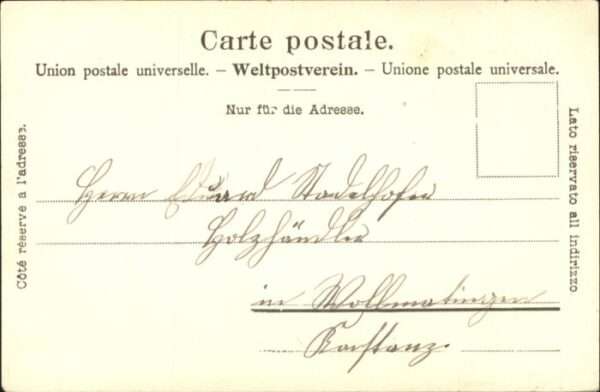 Carte postale.
Union postale universelle. – Weltpostverein. – Unione postale universale.
Nur für die Adresse.
Côté réservé à l'adresse.
Lato riservato all indirizzo
Herrn Eduard Stadelhofer
Holzhändler
in Wollmatingen
Konstanz.